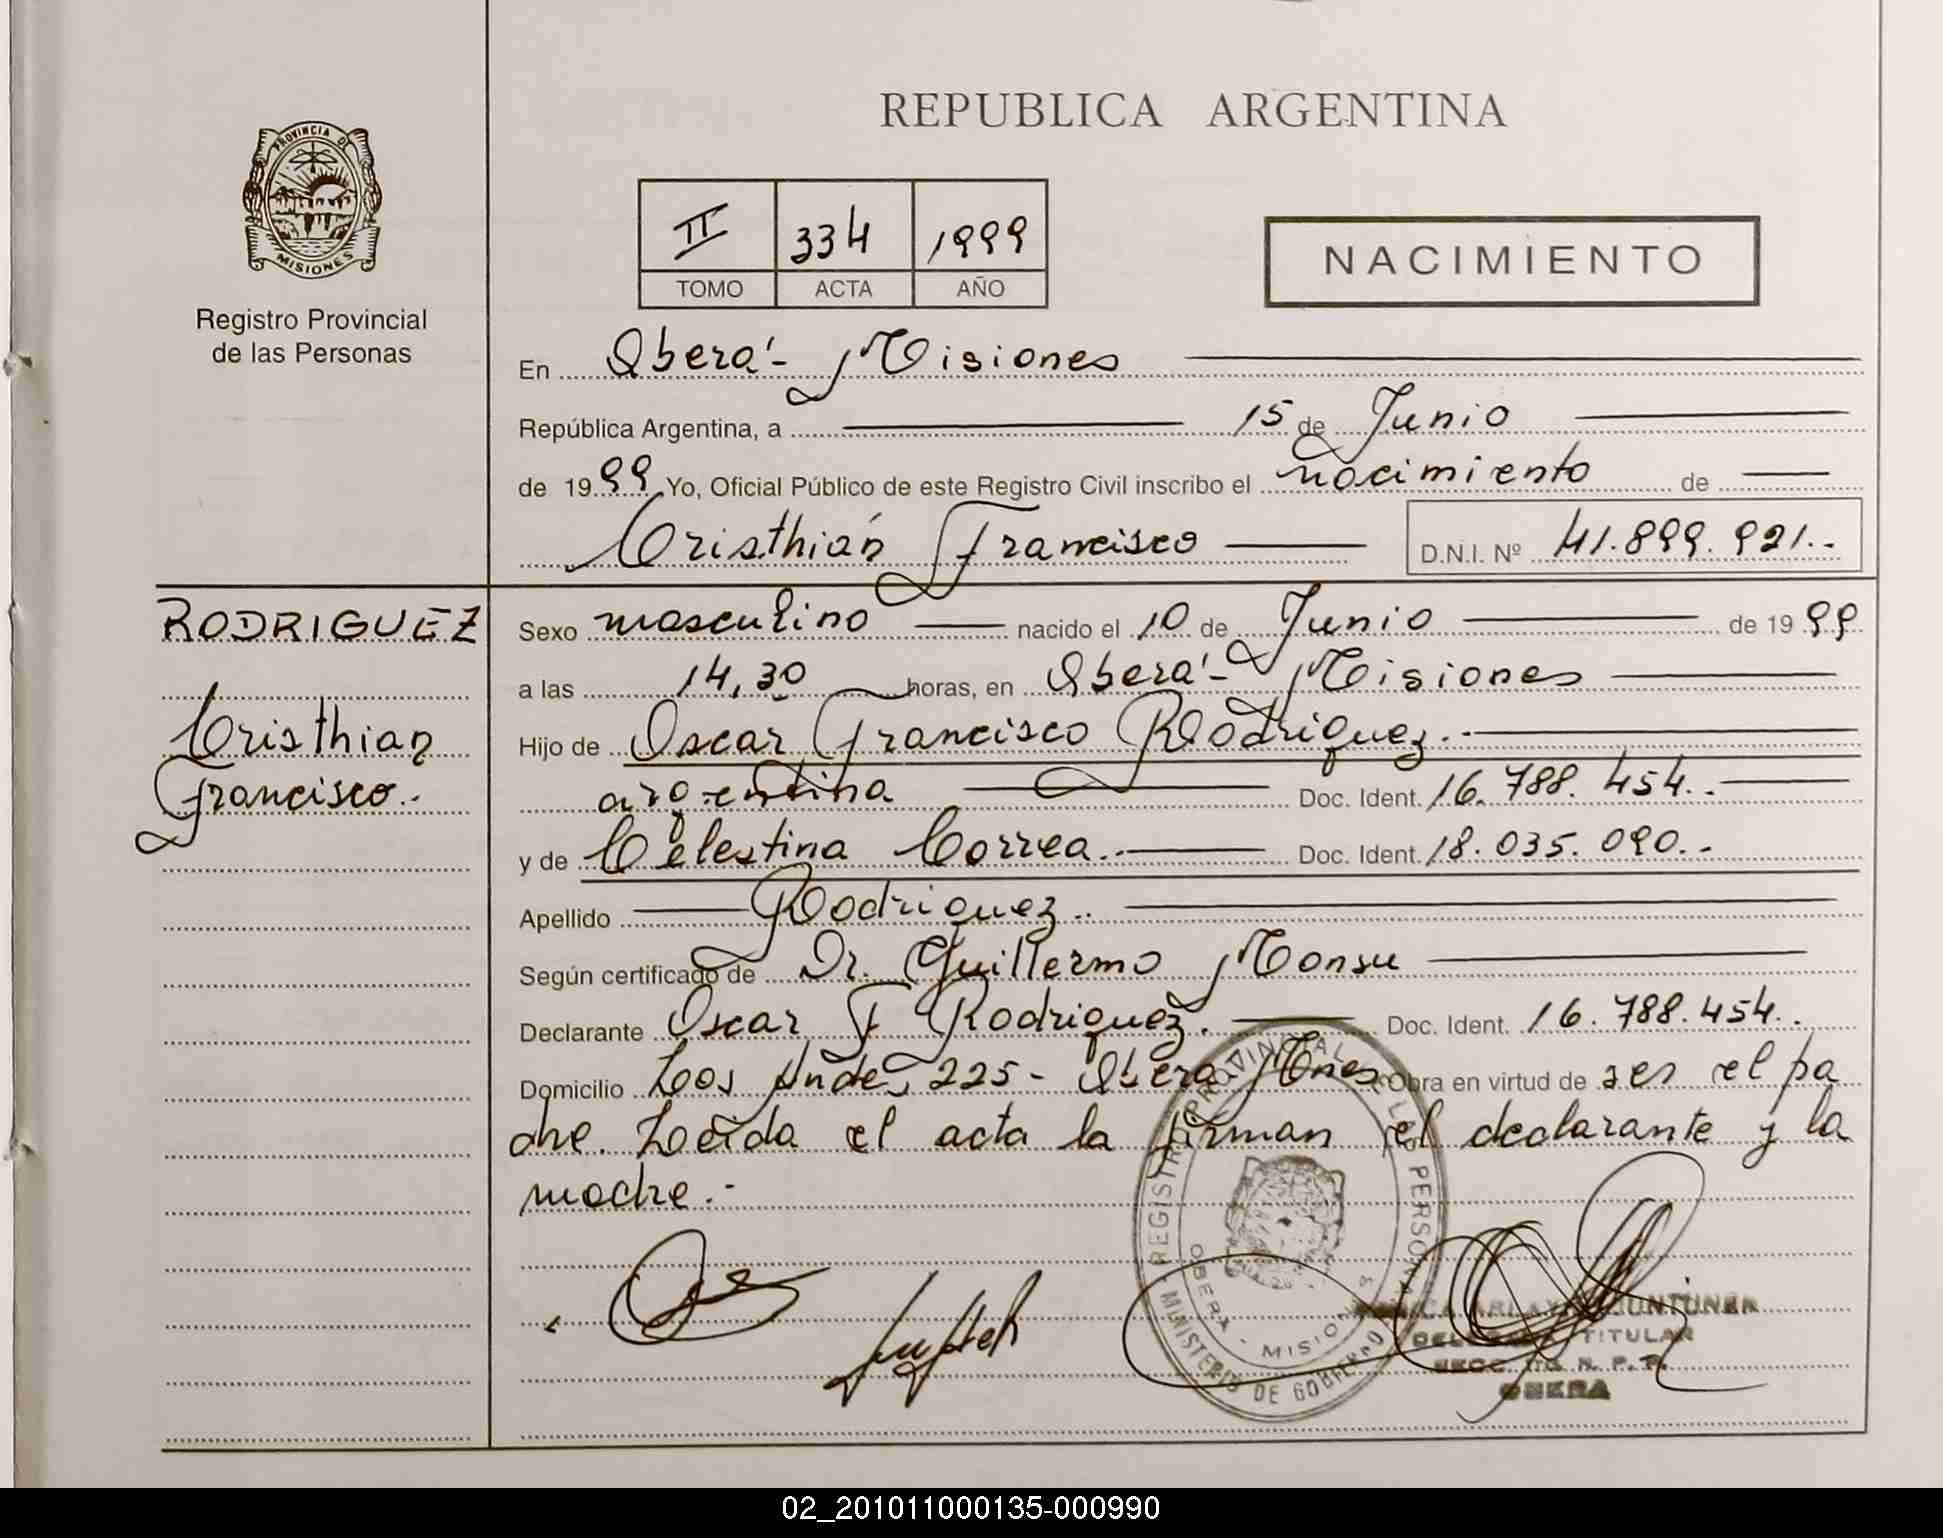 REPUBLICA ARGENTINA
PROVINCIA DE
MISIONES
Registro Provincial
de las Personas
II 334 1999
TOMO ACTA AÑO
NACIMIENTO
En Oberá - Misiones
República Argentina, a 15 de Junio
de 1999 Yo, Oficial Público de este Registro Civil inscribo el nacimiento de
Cristhián Francisco D.N.I. Nº 41.899.921.-
RODRIGUEZ
Cristhian
Francisco.-
Sexo masculino nacido el 10 de Junio de 1999
a las 14,30 horas, en Oberá - Misiones
Hijo de Oscar Francisco Rodriguez.-
argentina Doc. Ident. 16.788.454.-
y de Celestina Correa.- Doc. Ident. 18.035.090.-
Apellido Rodriguez.-
Según certificado de Dr. Guillermo Monsu
Declarante Oscar F Rodriguez. Doc. Ident. 16.788.454.
Domicilio Los Andes 225 - Oberá - Mnes Obra en virtud de ser el pa
dre. Leida el acta la firman el declarante y la
madre.-
REGISTRO PROVINCIAL DE LAS PERSONAS
OBERA - MISIONES
MINISTERIO DE GOBIERNO
TITULAR
OBERA
02_201011000135-000990